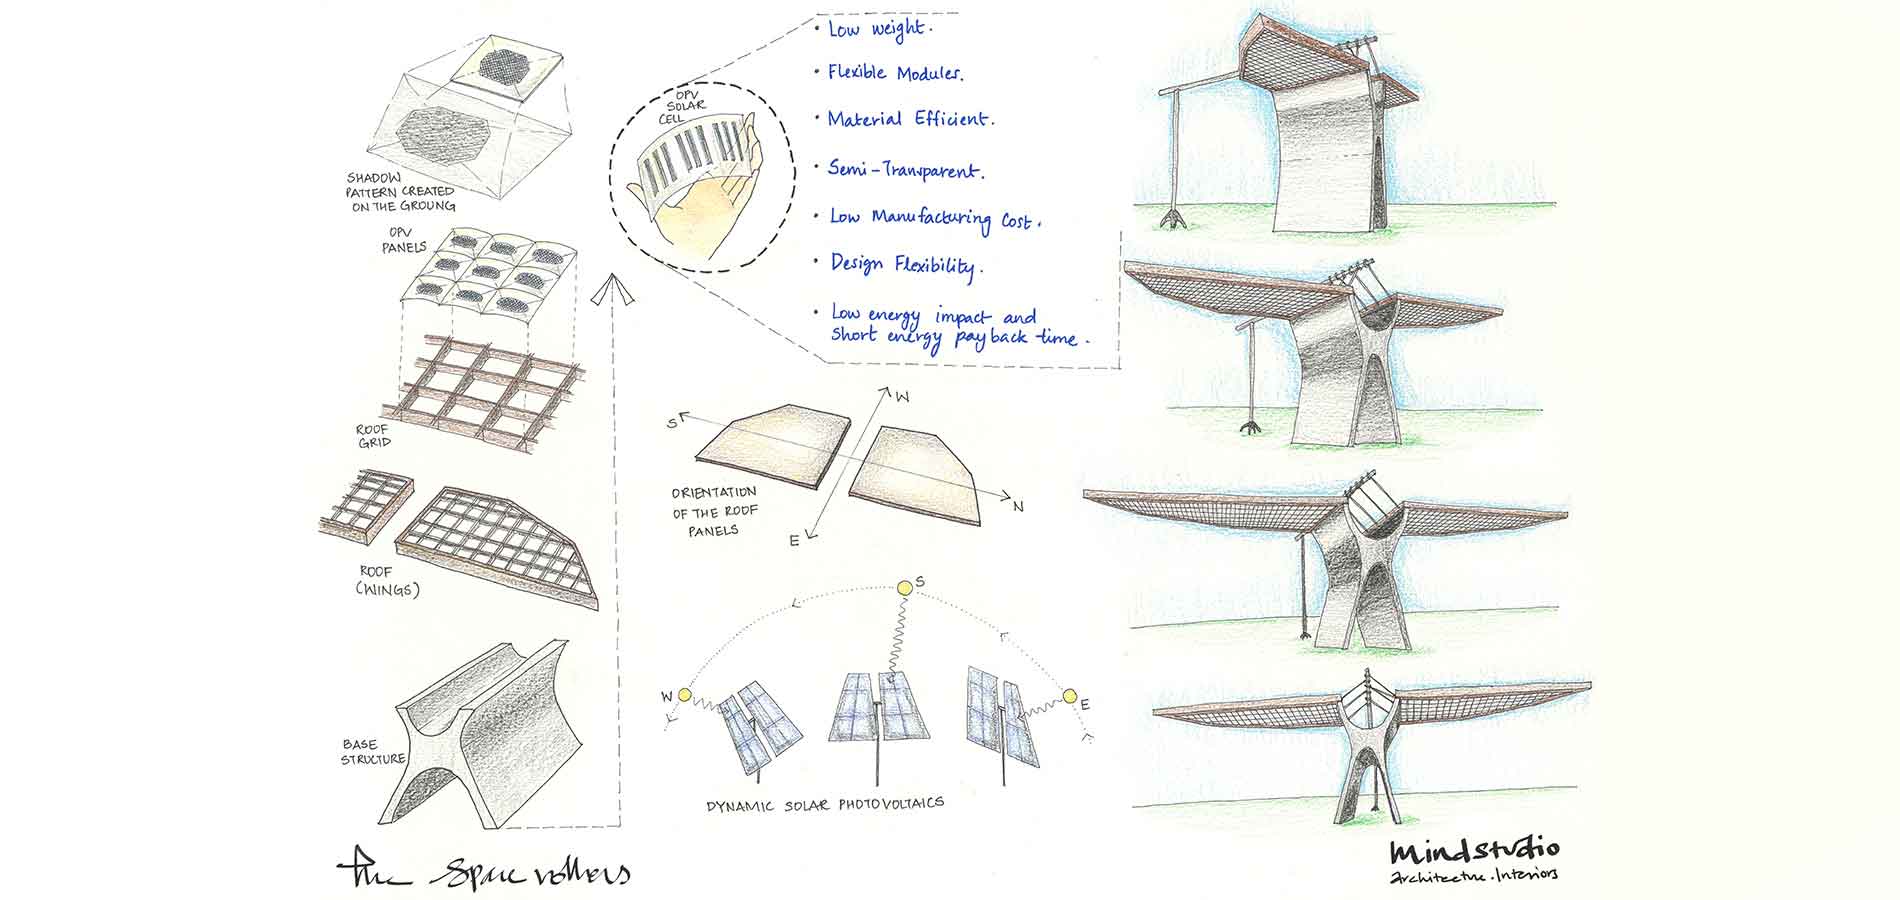 SHADOW
PATTERN CREATED
ON THE GROUNG
OPV
PANELS
ROOF
GRID
ROOF
(WINGS)
BASE
STRUCTURE
OPV
SOLAR
CELL
• Low weight.
• Flexible Modules.
• Material Efficient.
• Semi-Transparent.
• Low Manufacturing Cost.
• Design Flexibility.
• Low energy impact and
short energy payback time.
S
W
N
E
ORIENTATION
OF THE ROOF
PANELS
S
W
E
DYNAMIC SOLAR PHOTOVOLTAICS
The
mindstudio
Architecture.Interiors